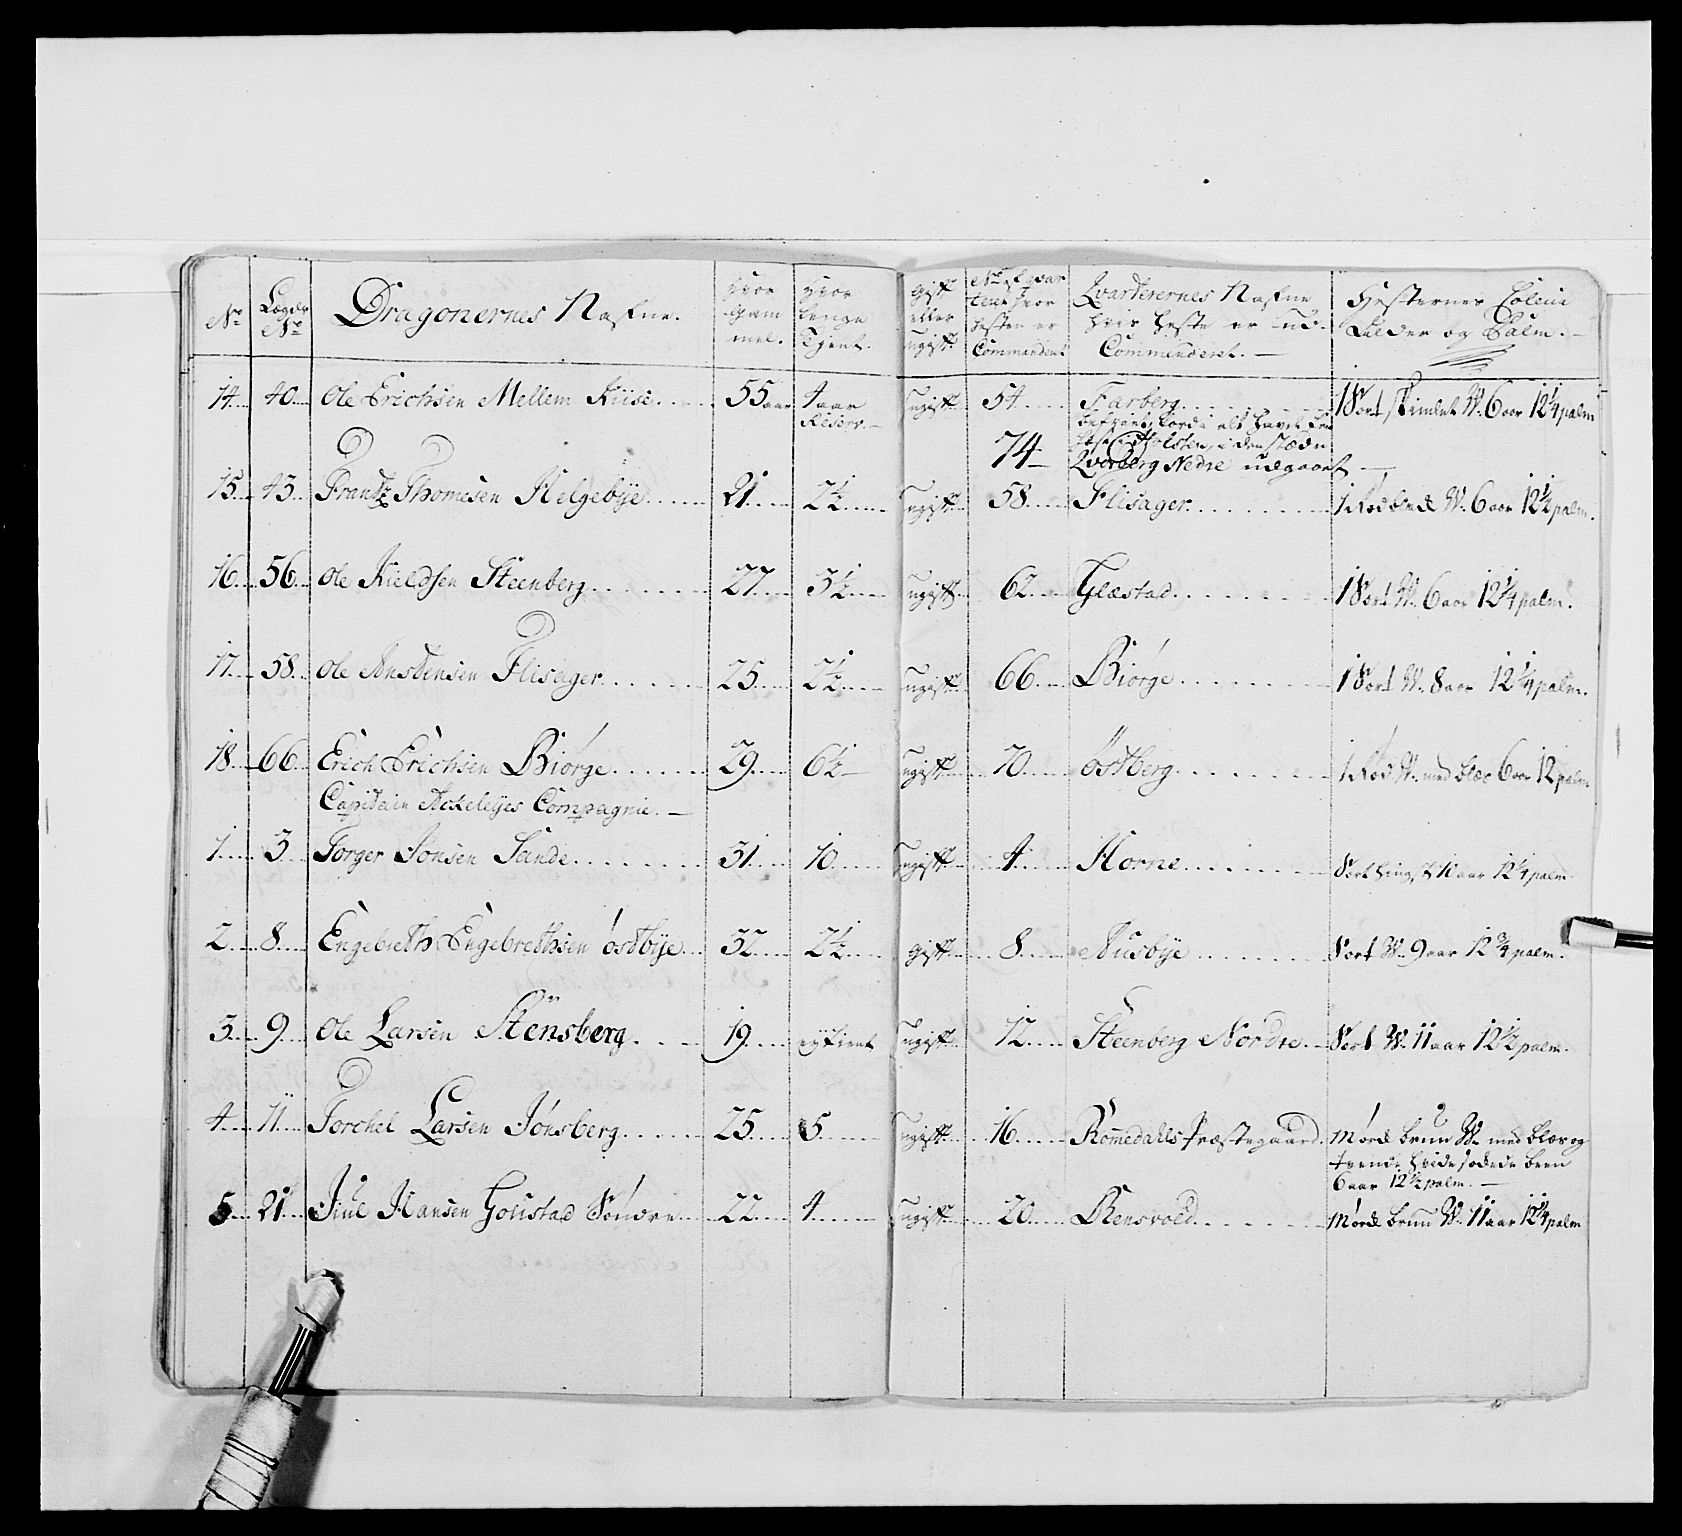 No Lægds No Dragonernes Nafne. Hvor Gam mel. Hvor lenge Tjent. Gift eller ugift No af qvar teret hvor hesten er Commandert Qvarterernes Nafne hvis heste er ud Commenderet. — Hesternes Coleur Alder og Palm. —
14 40 Ole Erichsen Mellem Kiise 55 aar 4 aar Reserv. — ugift 54 Farberg 1 Sort skimlet W. 6 aar 12 1/4 palm
74 — Holsten, i den stæd
Qverberg Nedre udgaaet —
15 43 Frantz Thomesen Helgebÿe 21 2 1/2 ugift 58 Flisager 1 Rødblact W. 6 aar 12 1/2 palm.
16 56 Ole Kieldsen Steenberg 27 3 1/2 ugift 62 Glæstad 1 Sort W. 6 aar 12 1/4 palm.
17 58 Ole Anstensen Flisager 25 2 1/2 ugift 66 Biørge 1 Sort W. 8 aar 12 1/4 palm.
18 66 Erich Erichsen Biørge 29 6 1/2 ugift 70 østberg 1 Rød W. med blæs 6 aar 12 palm
Capitain Ackeleÿes Compagnie. —
1 3 Torger Jonsen Sande 31 10 ugift 4 Horne Sort hingst 11 aar 12 1/4 palm
2 8 Engebreth Engebrethsen østbÿe 32 2 1/2 gift 8 Nusbÿe Sort W. 9 aar 12 3/4 palm.
3 9 Ole Larsen Stensberg 19 eÿ tient ugift 12 Steenberg Nordre Sort W. 11 aar 12 1/2 palm.
4 11 Torchel Larsen Jønsberg 25 5 ugift 16 Romedahls Præstegaard Mørk brun W. med blæs og
tvende hvide sockede been
6 aar 12 1/2 palm. —
5 21 Juul Hansen Goustad Søndre 22 4 ugift 20 Rensvold Mørk brun W. 11 aar 12 1/4 palm